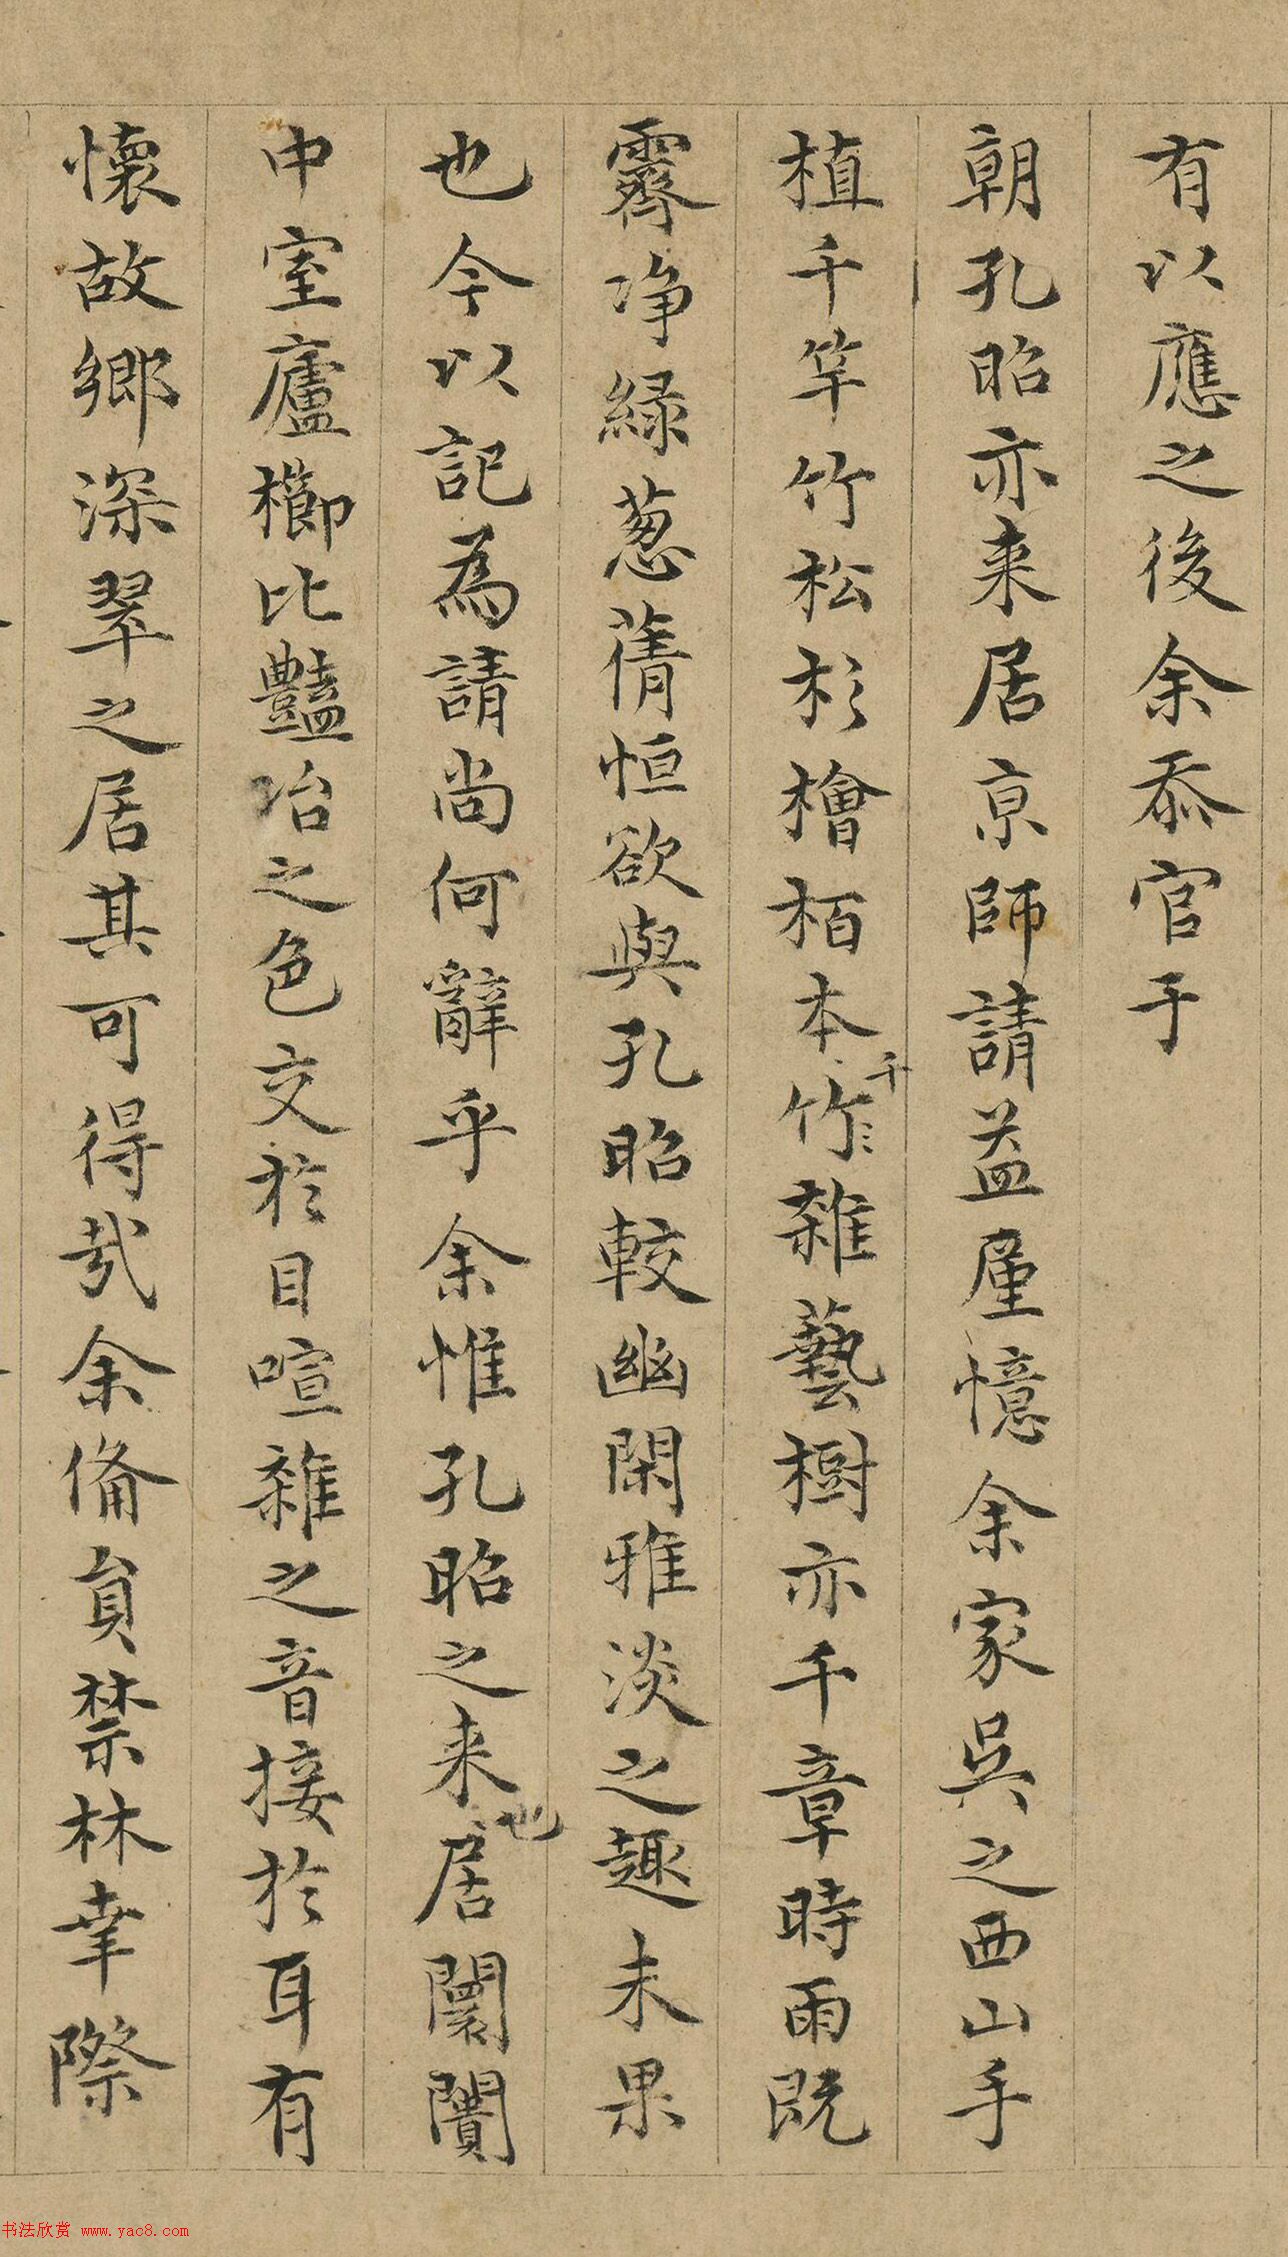 有以應之後余忝官于
朝孔昭亦来居京師請益厪憶余家吳之西山手
植千竿竹松杉檜栢本千竹〻雜藝樹亦千章時雨既
霽净緑葱蒨恒欲與孔昭較幽閑雅淡之趣未果
也今以記為請尚何辭乎余惟孔昭之来也居闤闠
中室廬櫛比豔冶之色交於目喧雜之音接於耳有
懷故鄉深翠之居其可得㦲余備貟禁林幸際
书法欣赏 www.yac8.com